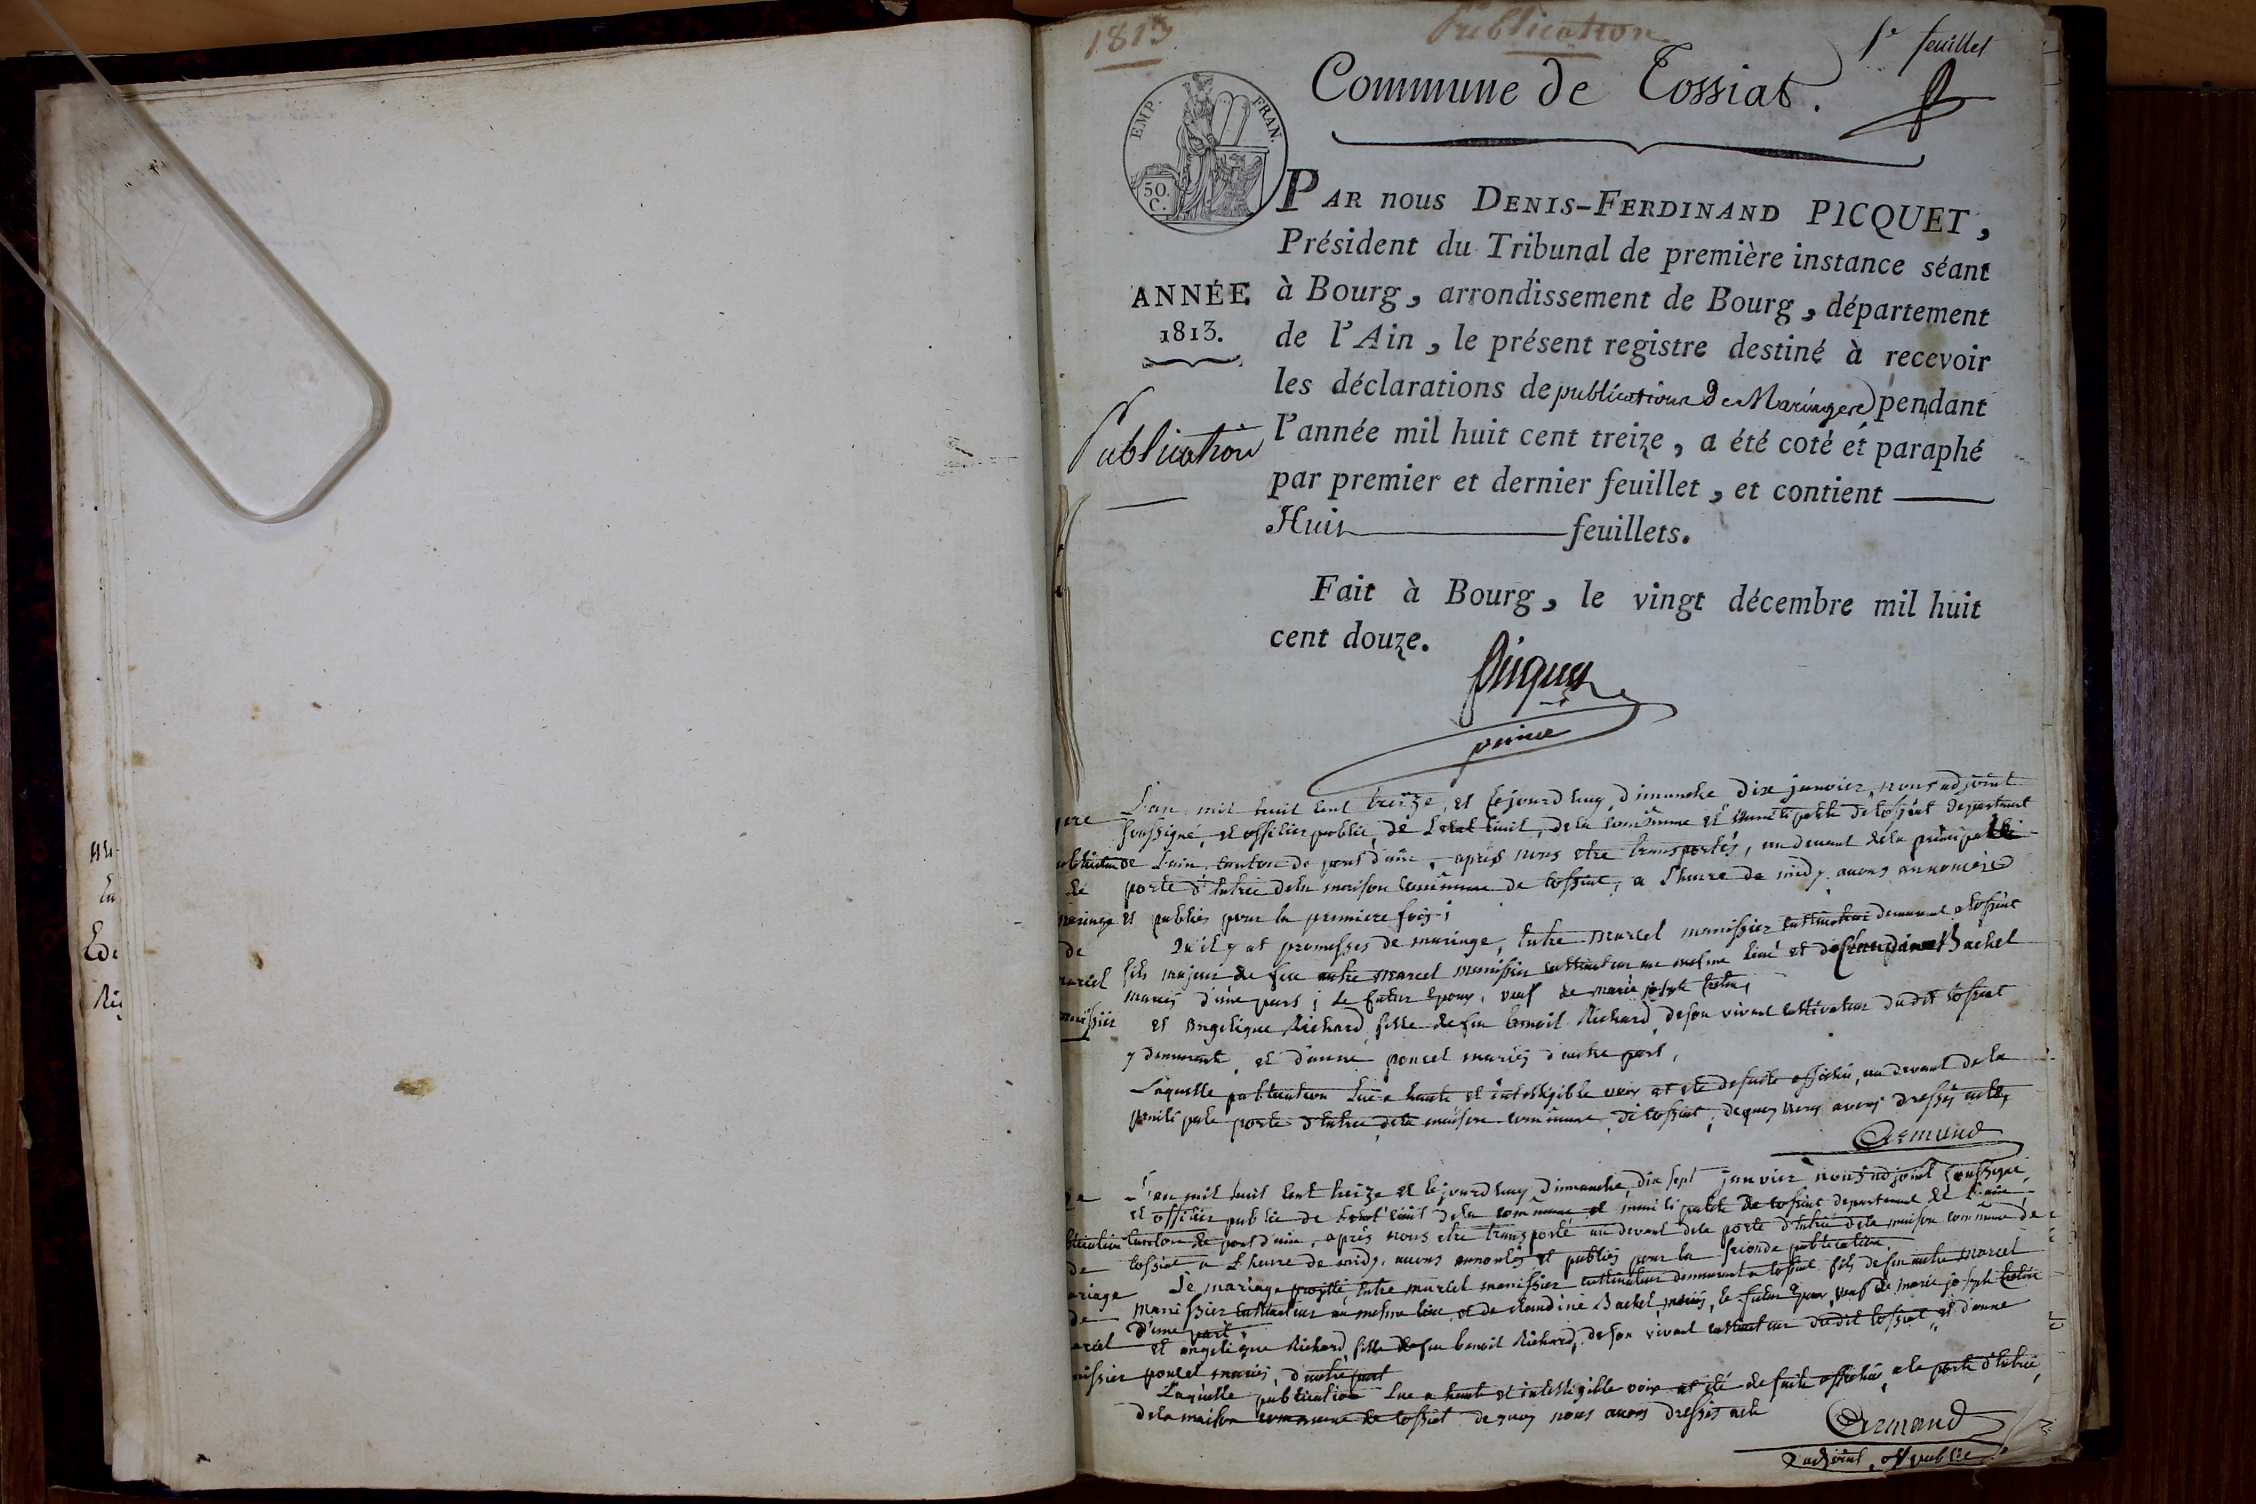 1813
Publication
1er feuillet
Commune de Tossiat.
EMP. FRAN.
50. C.
PAR nous DENIS-FERDINAND PICQUET,
Président du Tribunal de première instance séant
à Bourg, arrondissement de Bourg, département
de l'Ain, le présent registre destiné à recevoir
les déclarations de publications de Mariages pendant
l'année mil huit cent treize, a été coté et paraphé
par premier et dernier feuillet, et contient
Huit feuillets.
ANNÉE
1813.
Publication
Fait à Bourg, le vingt décembre mil huit
cent douze.
Picquet
L'an mil huit cent treize, et le jourd'huy dimanche dix janvier, nous adjoint
soussigné, et officier public, de l'etat civil, de la commune et municipalité de tossiat departement
de l'ain, canton de pont d'ain, après nous etre transportés, au devant de la principalle
porte d'entrée de la maison commune de tossiat, a l'heure de midy, avons annoncé
et publiés pour la premiere fois;
Qu'il y at promesses de mariage, entre marcel manissier cultivateur demeurant a tossiat
fils majeur de feu autre marcel manissier cultivateur au mesme lieu et de Claudine Bachel
mariés d'une part; le futur epoux, veuf de marie joseph
et angelique Richard, fille de feu benoit Richard, de son vivant cultivateur dudit tossiat
y demeurant, et d'anne poncet mariés d'autre part,
Laquelle publication lue a haute et intelligible voix at eté de suite affichée, au devant de la
principale porte d'entrée de la maison commune, de tossiat, de quoy nous avons dressés acte,
Armand
de
mariage
de
marcel
manissier
L'an mil huit cent treize et le jourd'huy dimanche, dix sept janvier nous adjoint soussigné,
et officier public de l'etat civil de la commune et municipalité de tossiat departement de l'ain,
canton de pont d'ain, après nous etre transporté au devant de la porte d'entrée de la maison commune de
tossiat a l'heure de midy, avons annoncés et publiés pour la seconde publication,
Le mariage projetté, entre marcel manissier cultivateur demeurant a tossiat fils de feu autre marcel
manissier cultivateur au mesme lieu, et de claudine Bachel, mariés, le futur epoux, veuf de marie joseph
d'une part
et angelique Richard, fille de feu benoit Richard, de son vivant cultivateur dudit tossiat, et d'anne
poncet mariés, d'autre part
Laquelle publication lue a haute et intelligible voix at eté de suite affichée, a la porte d'entrée,
de la maison commune de tossiat de quoy nous avons dressés acte
Armand
L'adjoint, off public
de
mariage
de